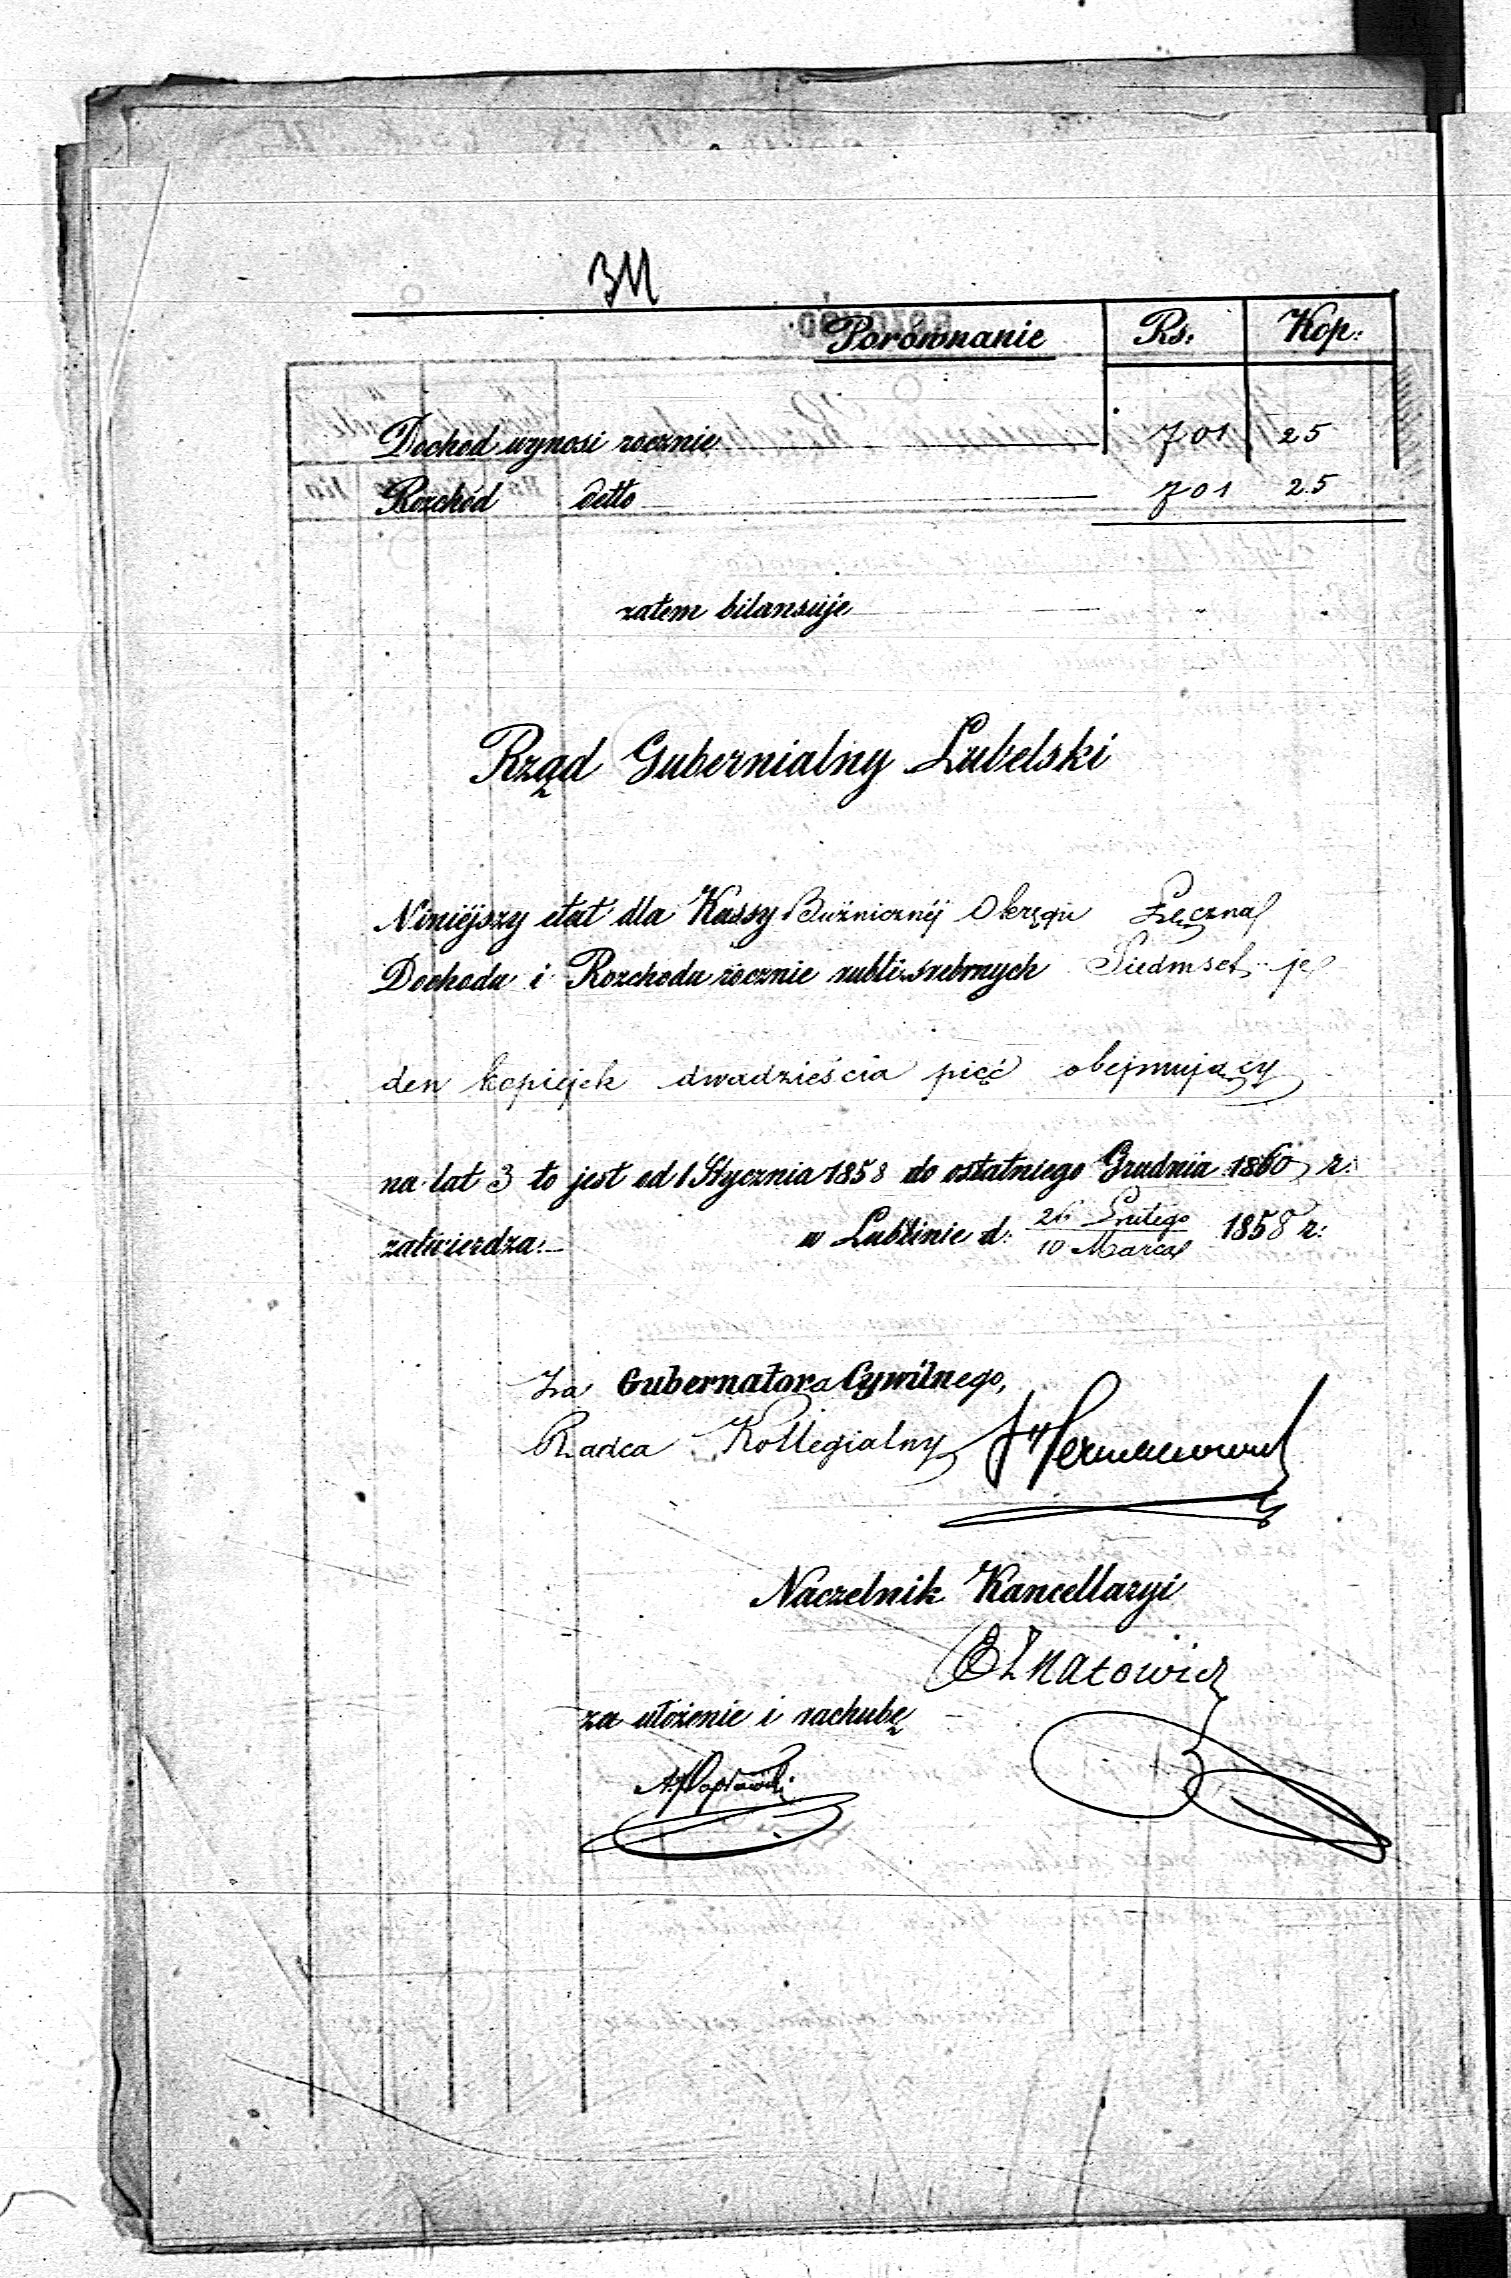 Porównanie Rs: Kop:
Dochód wynosi rocznie 701 25
Rozchód detto 701 25
zatem bilansuje " "
Rząd Gubernialny Lubelski
Niniéjszy etat dla Kassy Bużnicznéj Okręgu Łęczna
Dochodu i Rozchodu rocznie rubli srebrnych Siedmset je
den kopiejek dwadzieścia pięć obejmujący
na lat 3 to jest od 1 Stycznia 1858 do ostatniego Grudnia 1860 r:
zatwierdza. w Lublinie d: 26 Lutego 1858 r:
10 Marca
Za Gubernatora Cywilnego,
Radca Kollegialny
Naczelnik Kancellaryi
za ułożenie i rachubę